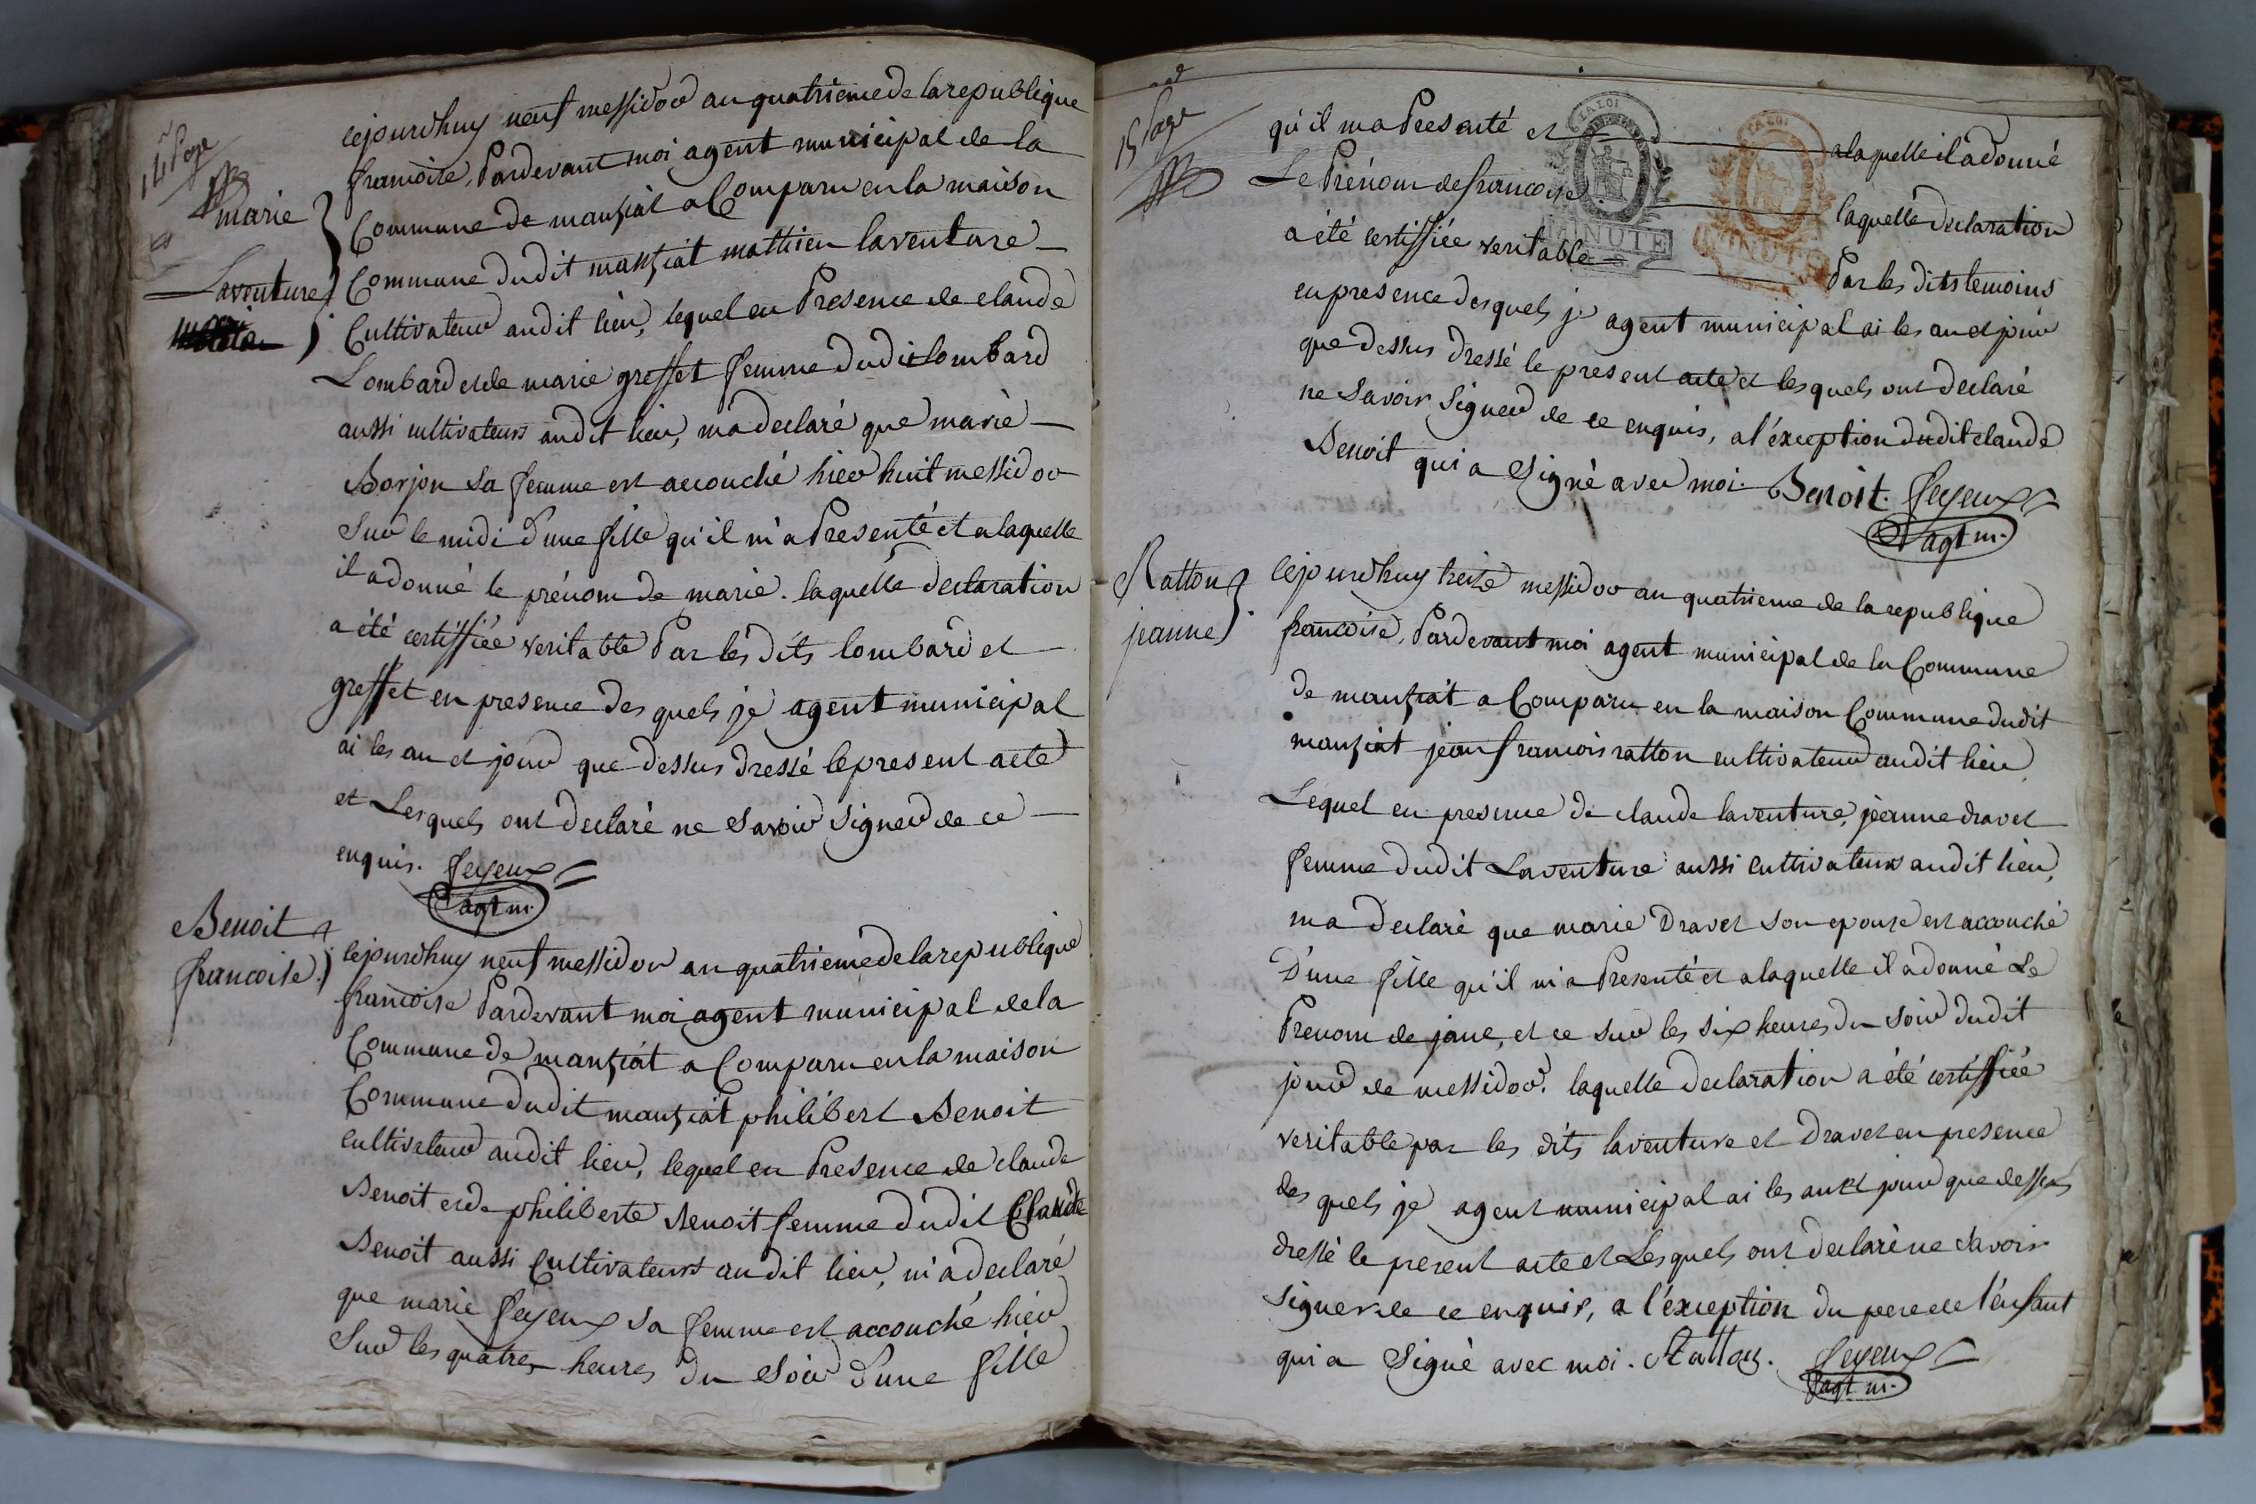 14e Page
marie
Laventure
cejourdhuy neuf messidor an quatrieme de la republique
francoise, Pardevant moi agent municipal de la
Commune de manziat a Comparu en la maison
Commune dudit manziat mathieu laventure
Cultivateur audit lieu, lequel en Presence de claude
Lombard et de marie greffet femme dudit lombard
aussi cultivateurs audit lieu, ma declaré que marie
Borjon sa femme est accouché hier huit messidor
Sur le midi d'une fille qu'il m'a Presenté et a laquelle
il a donné le prénom de marie. laquelle declaration
a été certiffiée veritable Par les dits lombard et
greffet en presence des quels je agent municipal
ai les an et jour que dessus dressé le present acte
et Lesquels ont declaré ne Savoir Signer de ce
enquis. feyeux
agt m.
Benoit
francoise.
cejourdhuy neuf messidor an quatrieme de la republique
francoise Pardevant moi agent municipal de la
Commune de manziat a Comparu en la maison
Commune dudit manziat philibert Benoit
cultivateur audit lieu, lequel en Presence de claude
Benoit et de philiberte Benoit femme dudit Claude
Benoit aussi Cultivateurs audit lieu, m'a declaré
que marie feyeux sa femme est accouché hier
Sur les quatre heures du Soir d'une fille
15 Page
qu'il ma Presenté et a laquelle il a donné
Le Prénom de francoise laquelle declaration
a été certiffiée veritable Par les dits temoins
en presence desquels je agent municipal ai les an et jour
que dessus dressé le present acte et lesquels ont declaré
ne Savoir Signer de ce enquis, a l'éxception dudit claude
Benoit qui a Signé avec moi. Benoit. feyeux
agt m.
LA LOI
MINUTE
LA LOI
MINUTE
Ratton
jeanne
cejourdhuy treize messidor an quatrieme de la republique
francoise, Pardevant moi agent municipal de la Commune
de manziat a Comparu en la maison Commune dudit
manziat jean francois ratton cultivateur audit lieu
Lequel en presence de claude laventure, jeanne dravet
femme dudit Laventure aussi cultivateurs audit lieu,
ma declaré que marie Dravet son epouse est accouché
D'une fille qu'il m'a Presenté et a laquelle il a donné Le
Prenom de jane, et ce sur les six heures du soir dudit
jour de messidor. laquelle declaration a été certiffiée
veritable par les dits laventure et dravet en presence
des quels je agent municipal ai les an et jour que dessus
dressé le present acte et Lesquels ont declaré ne Savoir
Signer de ce enquis, a l'éxception du pere de l'énfant
qui a Signé avec moi. Ratton. feyeux
agt m.